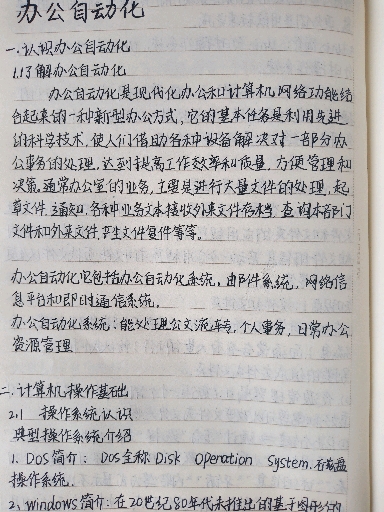 办公自动化
一.认识办公自动化
1.1了解办公自动化
办公自动化是现代化办公和计算机网络功能结
合起来的一种新型办公方式,它的基本任务是利用先进
的科学技术,使人们借助各种设备解决对一部分办
公事务的处理,达到提高工作效率和质量,方便管理和
决策,通常办公室的业务,主要是进行大量文件的处理,起
草文件,通知,各种业务文本接收外来文件存档,查询本部门
文件和外来文件,产生文件复件等等。
办公自动化它包括办公自动化系统,由邮件系统,网络信
息平台和即时通信系统。
办公自动化系统:能处理公文流转,个人事务,日常办公
资源管理
二.计算机操作基础
2.1 操作系统认识
典型操作系统介绍
1、Dos简介: Dos全称 Disk Operation System.否磁盘
操作系统.
2、windows简介:在20世纪80年代末推出的基于图形的